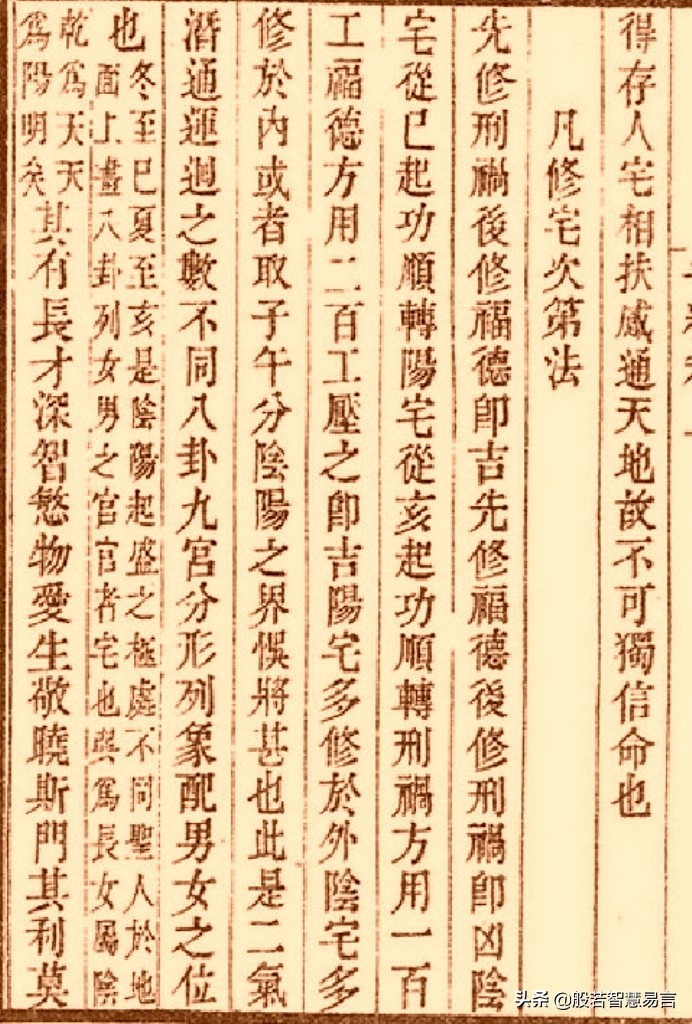 得存人宅相扶感通天地故不可獨信命也
凡修宅次第法
先修刑禍後修福德即吉先修福德後修刑禍即凶陰
宅從巳起功順轉陽宅從亥起功順轉刑禍方用一百
工福德方用二百工壓之即吉陽宅多修於外陰宅多
修於內或者取子午分陰陽之界悞將甚也此是二氣
潛通運迴之數不同八卦九宮分形列象配男女之位
也冬至巳夏至亥是陰陽起盛之極處不同聖人於地
面上畫八卦列女男之官官者宅也巽爲長女屬陰
乾爲天天
爲陽明矣其有長才深智慜物愛生敬曉斯門其利莫
头条 @般若智慧易言